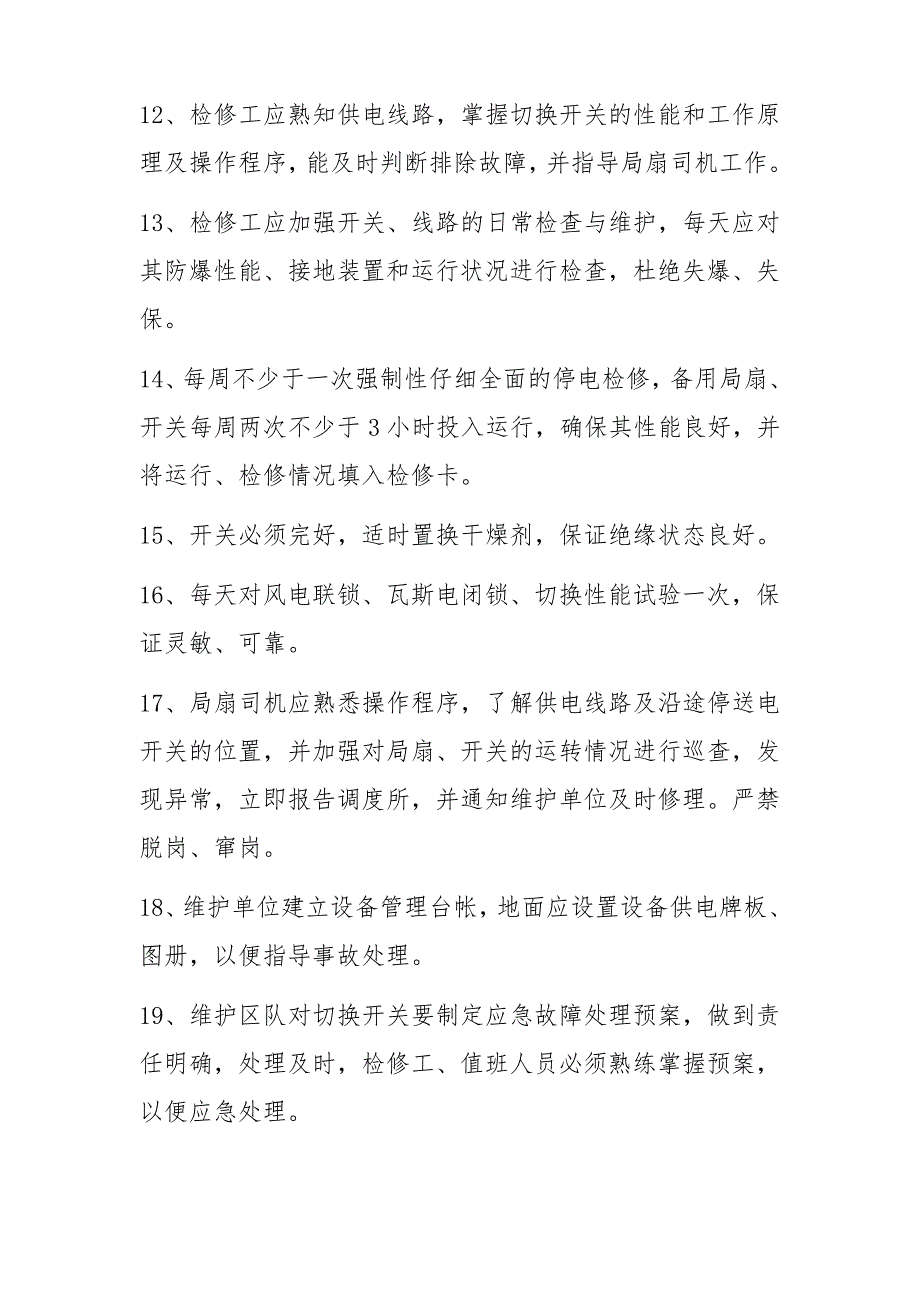 12、检修工应熟知供电线路，掌握切换开关的性能和工作原
理及操作程序，能及时判断排除故障，并指导局扇司机工作。
13、检修工应加强开关、线路的日常检查与维护，每天应对
其防爆性能、接地装置和运行状况进行检查，杜绝失爆、失
保。
14、每周不少于一次强制性仔细全面的停电检修，备用局扇、
开关每周两次不少于 3 小时投入运行，确保其性能良好，并
将运行、检修情况填入检修卡。
15、开关必须完好，适时置换干燥剂，保证绝缘状态良好。
16、每天对风电联锁、瓦斯电闭锁、切换性能试验一次，保
证灵敏、可靠。
17、局扇司机应熟悉操作程序，了解供电线路及沿途停送电
开关的位置，并加强对局扇、开关的运转情况进行巡查，发
现异常，立即报告调度所，并通知维护单位及时修理。严禁
脱岗、窜岗。
18、维护单位建立设备管理台帐，地面应设置设备供电牌板、
图册，以便指导事故处理。
19、维护区队对切换开关要制定应急故障处理预案，做到责
任明确，处理及时，检修工、值班人员必须熟练掌握预案，
以便应急处理。